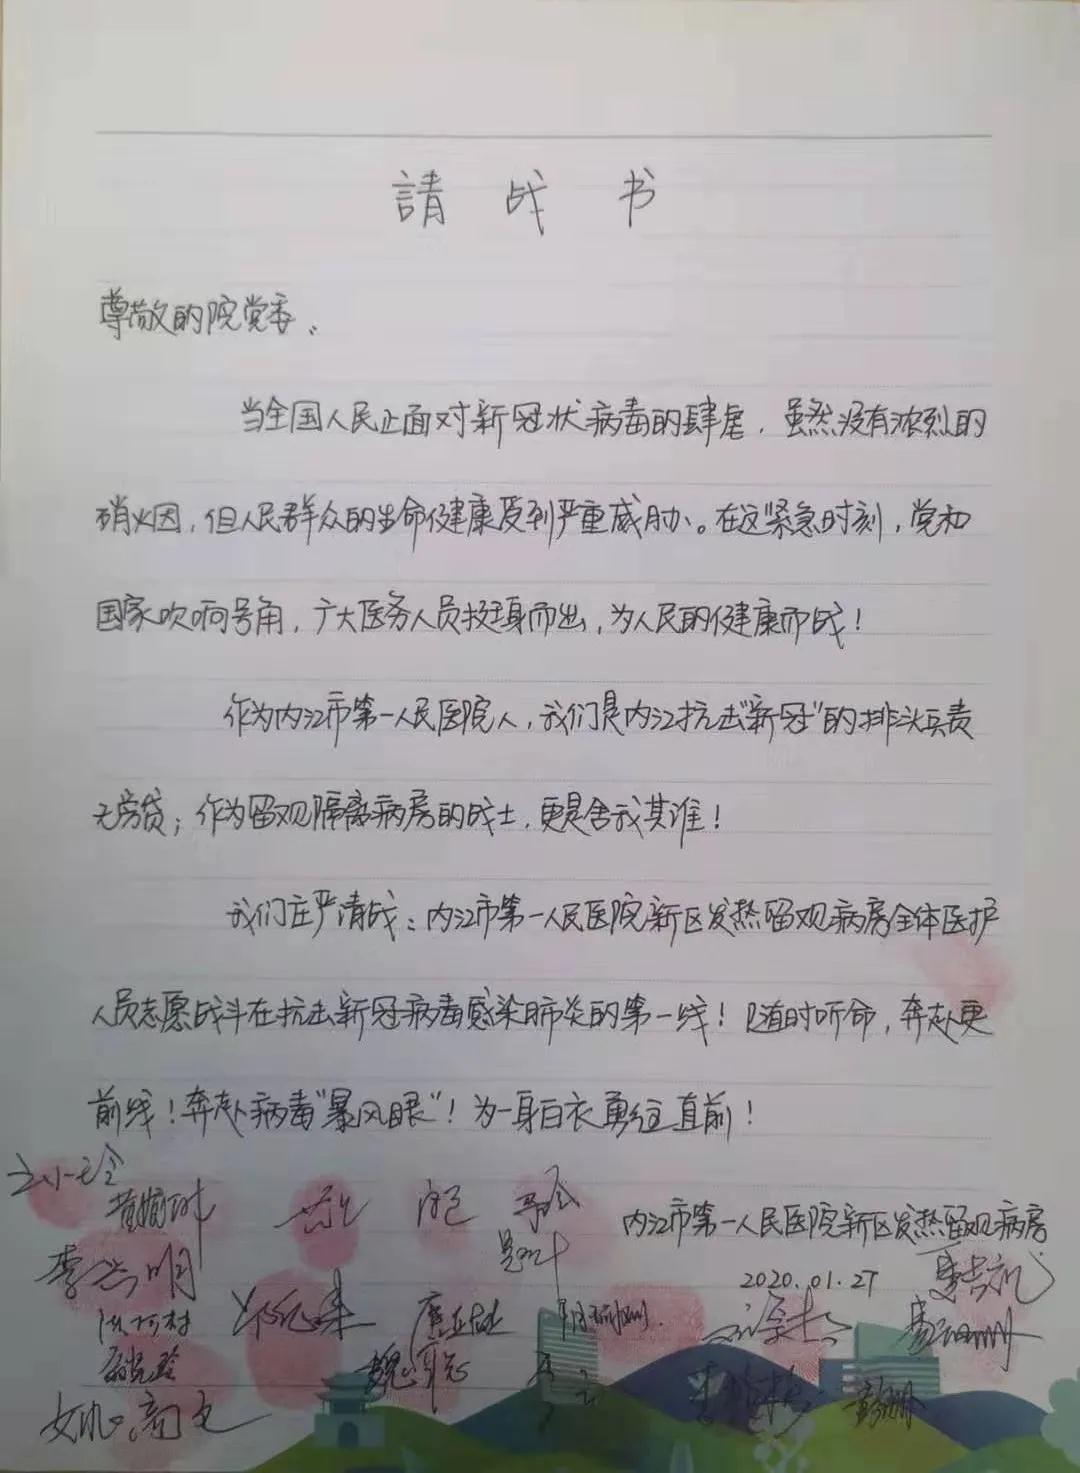 請战书
尊敬的院党委、
当全国人民正面对新冠状病毒的肆虐，虽然没有浓烈的
硝烟因，但人民群众的生命健康受到严重威胁。在这紧急时刻，党和
国家吹响号角，广大医务人员挺身而出，为人民的健康而战！
作为内江市第一人民医院人，我们是内江抗击“新冠”的排头兵责
无旁贷；作为留观隔离病房的战士，更是舍我其谁！
我们庄严请战：内江市第一人民医院新区发热留观病房全体医护
人员志愿战斗在抗击新冠病毒感染肺炎的第一线！随时听命，奔赴更
前线！奔赴病毒“暴风眼”！为一身白衣勇往直前！
内江市第一人民医院新区发热留观病房
2020.01.27